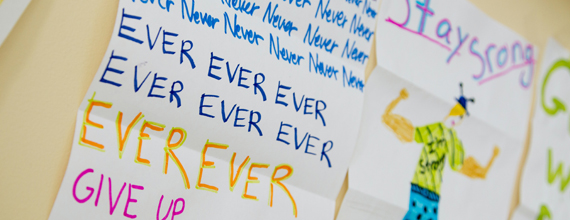 Never Never Never
Never Never Never Never
Never Never Never Never Never
EVER EVER EVER
EVER EVER EVER
EVER EVER
GIVE UP
Stay srong
I'm